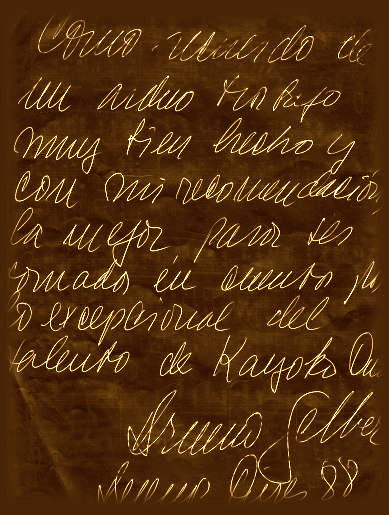 Como recuerdo de
un arduo trabajo
muy bien hecho y
con mi recomendación
la mejor para ser
tomada en cuenta
excepcional del
talento de Kayoko
Bruno Gelber
Buenos Aires 88